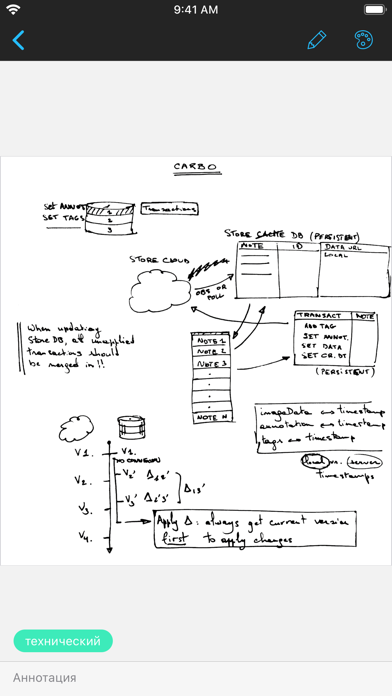 9:41 AM
CARBO
Set ANNOT.
SET TAGS
1
2
3
Transactions
STORE CACHE DB (PERSISTENT)
NOTE ID DATA URL
LOCAL
STORE CLOUD
OBS OR
POLL
TRANSACT NOTE
ADD TAG
SET ANNOT.
SET DATA
SET CR. DT
(PERSISTENT)
When updating
Store DB, all unapplied
transactions should
be merged in!!
NOTE 1
NOTE 2
NOTE 3
NOTE N
imageData ↔ timestamp
annotation ↔ timestamp
tags ↔ timestamp
local vs. server
timestamps
V1. V1.
NO CONNEXION
V2' Δ12'
V2.
V3' Δ2'3' Δ13'
V3.
V4.
Apply Δ: always get current version
first to apply changes
технический
Аннотация